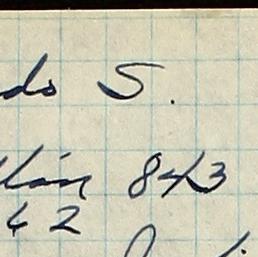 do S.
llán 843
42